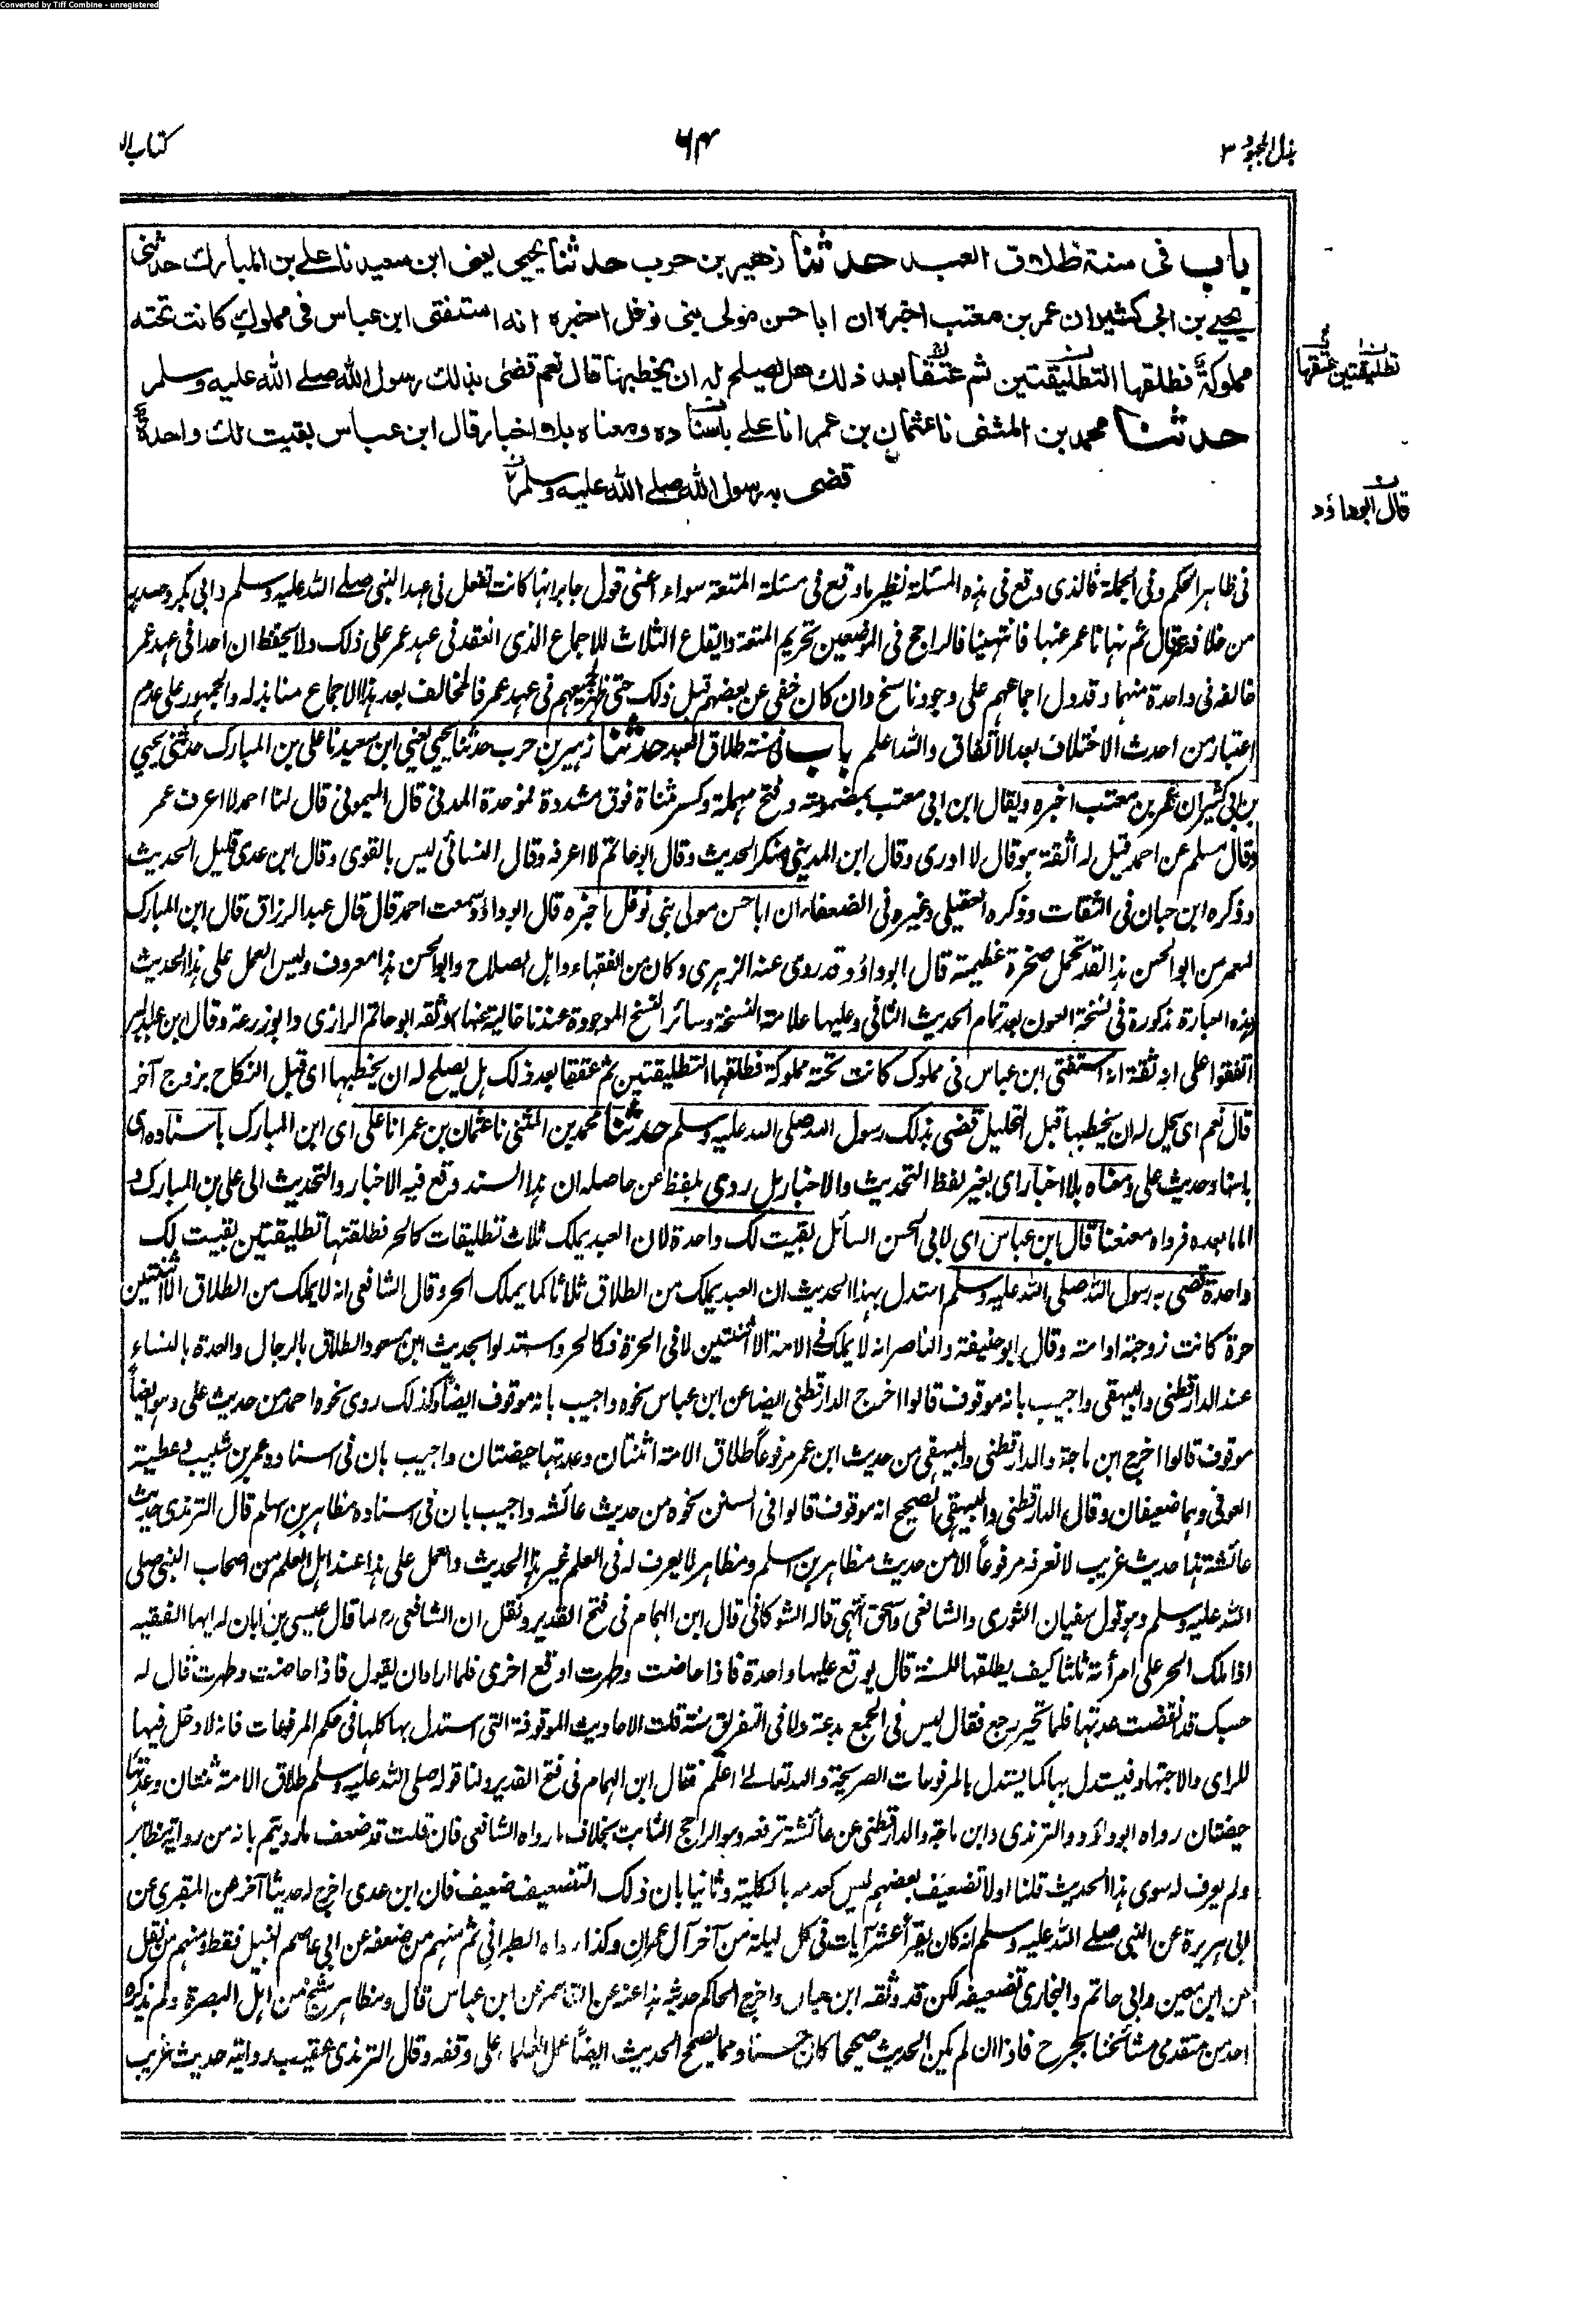 Converted by Tiff Combine - unregistered
بذل المجهود ٣
٦٤
كتاب ال
باب في سنة طلاق العبد حدثنا زهير بن حرب حدثنا يحيى يعني ابن سعيد نا علي بن المبارك حدثني
يحيى بن ابي كثير ان عمر بن معتب اخبره ان ابا حسن مولى بني نوفل اخبره انه استفتى ابن عباس في مملوك كانت تحته
مملوكة فطلقها التطليقتين ثم عتقا بعد ذلك هل يصلح له ان يخطبها قال نعم قضى بذلك رسول الله صلى الله عليه وسلم
حدثنا محمد بن المثنى نا عثمان بن عمر انا علي باسناده ومعناه بلا اخبار قال ابن عباس بقيت لك واحدة
قضى به رسول الله صلى الله عليه وسلم
تطليقتين عتقها
قال ابوداؤد
في ظاهر الحكم وفي الجملة فالذي وقع في هذه المسئلة نظير ما وقع في مسئلة المتعة سواء اعني قول جابر انها كانت تفعل في عهد النبي صلى الله عليه وسلم وابي بكر وصدر
من خلافة عمر قال ثم نهانا عمر عنها فانتهينا فالراجح في الموضعين تحريم المتعة وايقاع الثلاث للاجماع الذي انعقد في عهد عمر على ذلك ولا يحفظ ان احدا في عهد عمر
خالفه في واحدة منهما وقد دل اجماعهم على وجود ناسخ وان كان خفي عن بعضهم قبل ذلك حتى ظهر لجميعهم في عهد عمر فالمخالف بعد هذا الاجماع منابذ له والجمهور على عدم
اعتبار من احدث الاختلاف بعد الاتفاق والله اعلم باب في سنة طلاق العبد حدثنا زهير بن حرب حدثنا يحيى يعني ابن سعيد نا علي بن المبارك حدثني يحيى
بن ابي كثير ان عمر بن معتب اخبره ويقال ابن ابي معتب بمضمومة وفتح مهملة وكسر مثناة فوق مشددة لموحدة المدني قال الميموني قال لنا احمد لا اعرف عمر
وقال مسلم عن احمد قيل له أثقة هو قال لا ادري وقال ابن المديني منكر الحديث وقال ابو حاتم لا اعرفه وقال النسائي ليس بالقوي وقال ابن عدي قليل الحديث
وذكره ابن حبان في الثقات وذكره العقيلي وغيره في الضعفاء ان ابا حسن مولى بني نوفل اخبره قال ابو داؤد سمعت احمد قال قال عبد الرزاق قال ابن المبارك
لمعمر من ابو الحسن هذا لقد تحمل صخرة عظيمة قال ابو داؤد وقد روى عنه الزهري وكان من الفقهاء واهل الصلاح وابو الحسن هذا معروف وليس العمل على هذا الحديث
وهذه العبارة مذكورة في نسخة العون بعد تمام الحديث الثاني وعليها علامة النسخة وسائر النسخ الموجودة عندنا خالية عنها وثقه ابو حاتم الرازي وابو زرعة وقال ابن عبد البر
اتفقوا على انه ثقة انه استفتى ابن عباس في مملوك كانت تحته مملوكة فطلقها التطليقتين ثم عتقا بعد ذلك هل يصلح له ان يخطبها اي قبل النكاح بزوج آخر
قال نعم اي يحل له ان يخطبها قبل التحليل قضى بذلك رسول الله صلى الله عليه وسلم حدثنا محمد بن المثنى نا عثمان بن عمر انا علي اي ابن المبارك باسناده اي
باسناد حديث علي ومعناه بلا اخبار اي بغير لفظ التحديث والاخبار بل روي بلفظ عن حاصله ان هذا السند وقع فيه الاخبار والتحديث الى علي بن المبارك و
اما ما بعده فرواه معنعنا قال ابن عباس اي لابي الحسن السائل بقيت لك واحدة لان العبد يملك ثلاث تطليقات كالحر فطلقتها تطليقتين بقيت لك
واحدة قضى به رسول الله صلى الله عليه وسلم استدل بهذا الحديث ان العبد يملك من الطلاق ثلاثا كما يملك الحر وقال الشافعي انه لا يملك من الطلاق الا اثنتين
حرة كانت زوجته او امة وقال ابو حنيفة والناصر انه لا يملك في الامة الا اثنتين لا في الحرة فكالحر واستدلوا بحديث ابن مسعود الطلاق بالرجال والعدة بالنساء
عند الدارقطني والبيهقي واجيب بانه موقوف قالوا اخرج الدارقطني ايضا عن ابن عباس نحوه واجيب بانه موقوف ايضا وكذلك روى نحوه احمد من حديث علي وهو ايضا
موقوف قالوا اخرج ابن ماجة والدارقطني والبيهقي من حديث ابن عمر مرفوعا طلاق الامة اثنتان وعدتها حيضتان واجيب بان في اسناده عمر بن شبيب وعطية
العوفي وهما ضعيفان وقال الدارقطني والبيهقي الصحيح انه موقوف قالوا في السنن نحوه من حديث عائشة واجيب بان في اسناده مظاهر بن اسلم قال الترمذي حديث
عائشة هذا حديث غريب لا نعرفه مرفوعا الا من حديث مظاهر بن اسلم ومظاهر لا يعرف له في العلم غير هذا الحديث والعمل على هذا عند اهل العلم من اصحاب النبي صلى
الله عليه وسلم وهو قول سفيان الثوري والشافعي واسحق انتهى قاله الشوكاني قال ابن الهمام في فتح القدير ونقل ان الشافعي رح لما قال عيسى بن ابان له ايها الفقيه
اذا ملك الحر على امرأته ثلثا كيف يطلقها للسنة قال يوقع عليها واحدة فاذا حاضت وطهرت اوقع اخرى فلما اراد ان يقول فاذا حاضت وطهرت قال له
حسبك قد انقضت عدتها فلما تحير رجع فقال ليس في الجمع بدعة ولا في التفريق سنة قلت الاحاديث الموقوفة التي استدل بها كلها في حكم المرفوعات فانه لا دخل فيها
للراي والاجتهاد فيستدل بها كما يستدل بالمرفوعات الصريحة والله تعالى اعلم فقال ابن الهمام في فتح القدير ولنا قوله صلى الله عليه وسلم طلاق الامة ثنتان وعدتها
حيضتان رواه ابو داؤد والترمذي وابن ماجة والدارقطني عن عائشة ترفعه وهو الراجح الثابت بخلاف ما رواه الشافعي فان قلت قد ضعف ما رويتم بانه من رواية مظاهر
ولم يعرف له سوى هذا الحديث قلنا اولا تضعيف بعضهم ليس كعدمه بالكلية وثانيا بان ذلك التضعيف ضعيف فان ابن عدي اخرج له حديثا آخر عن المقبري عن
ابي هريرة عن النبي صلى الله عليه وسلم انه كان يقرأ عشر آيات في كل ليلة من آخر آل عمران وكذا رواه الطبراني ثم منهم من ضعفه عن ابي عاصم النبيل فقط ومنهم من نقل
عن ابن معين وابي حاتم والبخاري تضعيفه لكن قد وثقه ابن حبان واخرج الحاكم حديثه هذا عنه عن القاسم عن ابن عباس قال ومظاهر شيخ من اهل البصرة ولم يذكره
احد من متقدمي مشائخنا بجرح فاذا ان لم يكن الحديث صحيحا كان حسنا ومما يصحح الحديث ايضا عمل العلماء على وفقه وقال الترمذي عقيب روايته حديث غريب